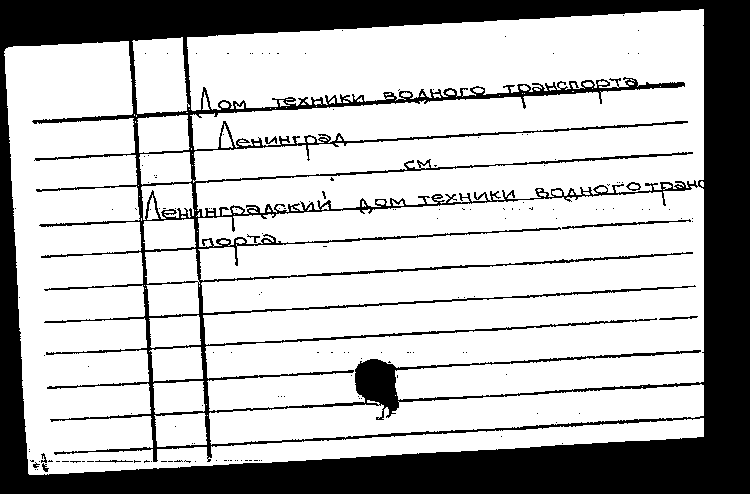 Дом техники водного транспорта.
Ленинград
см.
Ленинградский дом техники водного транс
порта.